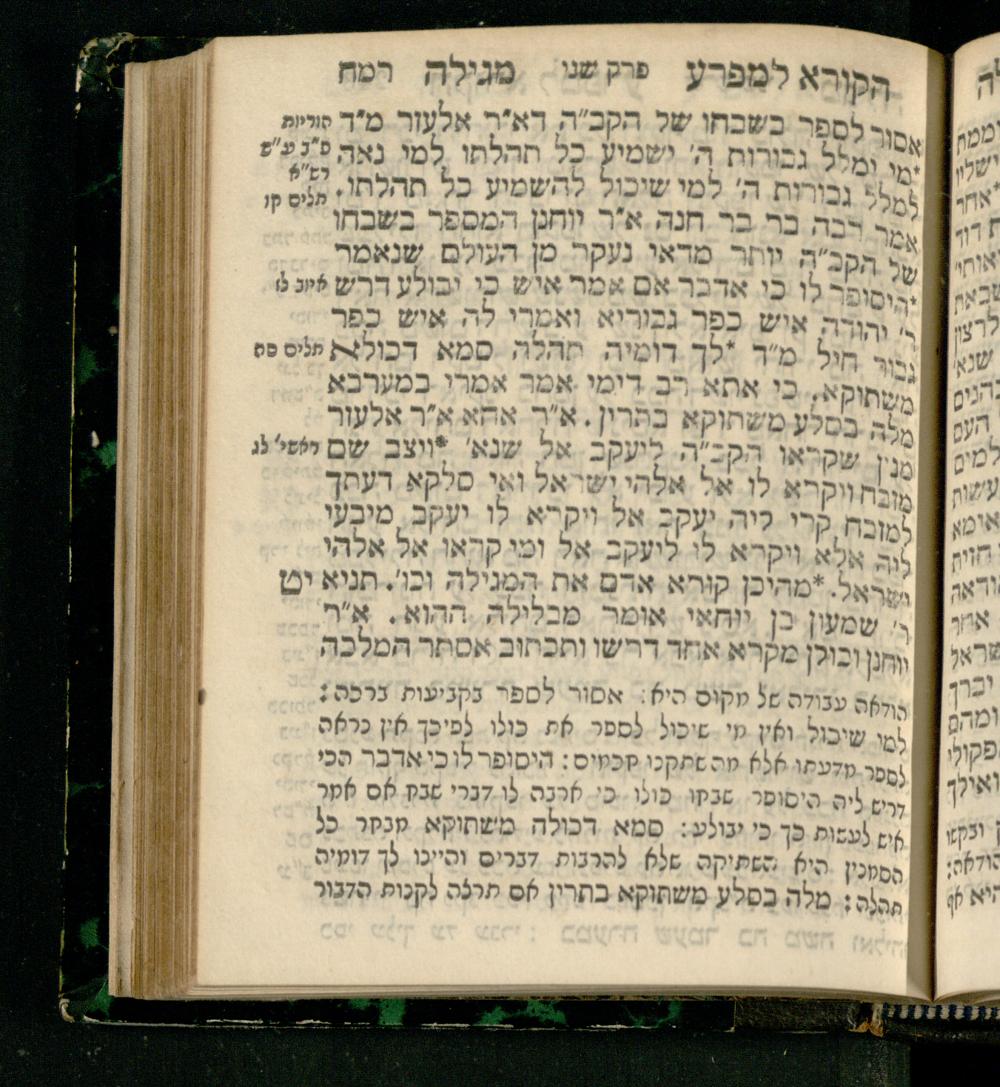 הקורא למפרע פרק שני מגילה רמח
אסור לספר בשבחו של הקב״ה דא״ר אלעזר מ״ד הוריות
*מי ימלל גבורות ה׳ ישמיע כל תהלתו למי נאה פ״ב ע״ש
רש״א
למלל גבורות ה׳ למי שיכול להשמיע כל תהלתו. תלים קו
אמר רבה בר בר חנה א״ר יוחנן המספר בשבחו
של הקב״ה יותר מדאי נעקר מן העולם שנאמר
*היסופר לו כי אדבר אם אמר איש כי יבולע דרש איוב לז
ר׳ יהודה איש כפר גבוריא ואמרי לה איש כפר
גבור חיל מ״ד *לך דומיה תהלה סמא דכולא תלים סה
משתוקא. כי אתא רב דימי אמר אמרי במערבא
מלה בסלע משתוקא בתרין. א״ר אחא א״ר אלעזר
מנין שקראו הקב״ה ליעקב אל שנא׳ *ויצב שם ראשי׳ לג
מזבח ויקרא לו אל אלהי ישראל ואי סלקא דעתך
למזבח קרי ליה יעקב אל ויקרא לו יעקב מיבעי
ליה אלא ויקרא לו ליעקב אל ומי קראו אל אלהי
ישראל. *מהיכן קורא אדם את המגילה וכו׳. תניא יט
ר׳ שמעון בן יוחאי אומר מבלילה ההוא. א״ר
יוחנן וכולן מקרא אחד דרשו ותכתוב אסתר המלכה
הודאה עבודה של מקום היא: אסור לספר בקביעות ברכה:
למי שיכול ואין מי שיכול לספר את כולו לפיכך אין נראה
לספר מדעתו אלא מה שתקנו חכמים: היסופר לו כי אדבר הכי
דריש ליה היסופר שבחו כולו כי ארבה לו דברי שבח אם אמר
איש לעשות כך כי יבולע: סמא דכולה משתוקא מבחר כל
הסמנין היא השתיקה שלא להרבות דברים והיינו לך דומיה
תהלה: מלה בסלע משתוקא בתרין אם תרצה לקנות הדבור